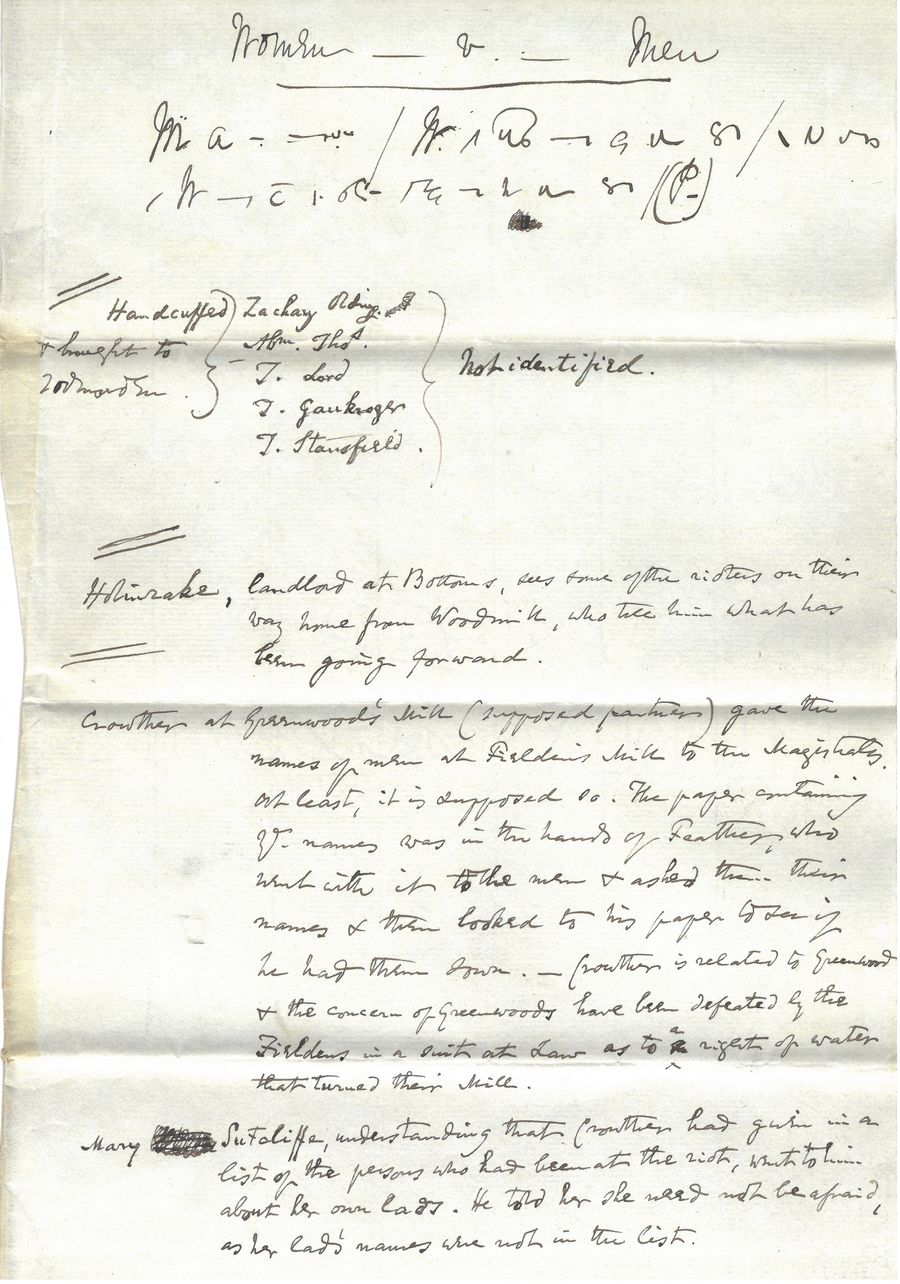 Women — v. — Men
Handcuffed
& brought to
Todmorden.
Zachary Riding.
Abm. Thos.
T. Lord
T. Gaukroger
T. Stansfield.
Not identified.
Holinrake, landlord at Bottoms, sees some of the rioters on their
way home from Woodmill, who tell him what has
been going forward.
Crowther at Greenwood's Mill (supposed partner) gave the
names of men at Fielden's Mill to the Magistrates,
at least, it is supposed so. The paper containing
ye. names was in the hands of Feather, who
went with it to the men & asked them their
names & then looked to his paper to see if
he had them down. — Crowther is related to Greenwood
& the concern of Greenwoods have been defeated by the
Fieldens in a suit at Law as to a right of water
that turned their Mill.
Mary Sutcliffe, understanding that Crowther had given in a
list of the persons who had been at the riot, went to him
about her own lads. He told her she need not be afraid,
as her lad's names were not in the list.